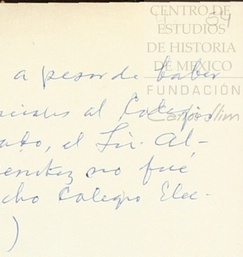 CENTRO DE
ESTUDIOS
DE HISTORIA
DE MÉXICO
FUNDACIÓN
Carlos Slim
a pesar de haber
ciales al Colegio
ato, el Lic. Al-
enitez no fué
cho Colegio Elec-
)